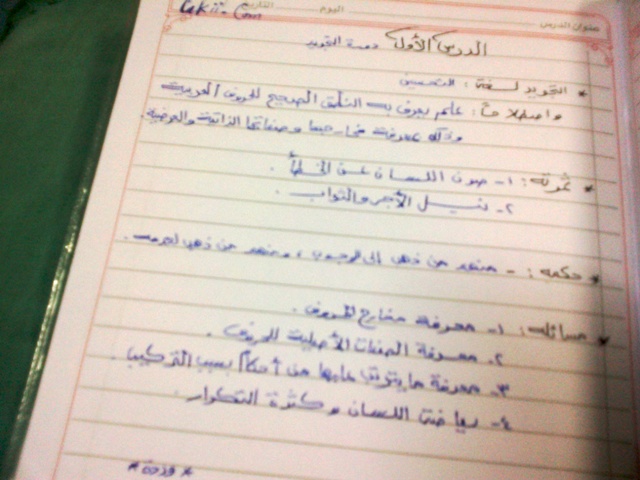 عنوان الدرس اليوم التاريخ
الدرس الأول
* التجويد لغة: التحسين
واصطلاحاً: علم يعرف به النطق الصحيح للحروف العربية
وذلك بمعرفة مخارجها وصفاتها الذاتية والعرضية.
* ثمرته: ١- صون اللسان عن الخطأ.
٢- نيل الأجر والثواب.
* حكمه: - منهم من ذهب إلى الوجوب، ومنهم من ذهب
* مسائله: ١- معرفة مخارج الحروف.
٢- معرفة الصفات الأصلية للحروف.
٣- معرفة ما يترتب عليها من أحكام بسبب التركيب.
٤- رياضة اللسان وكثرة التكرار.